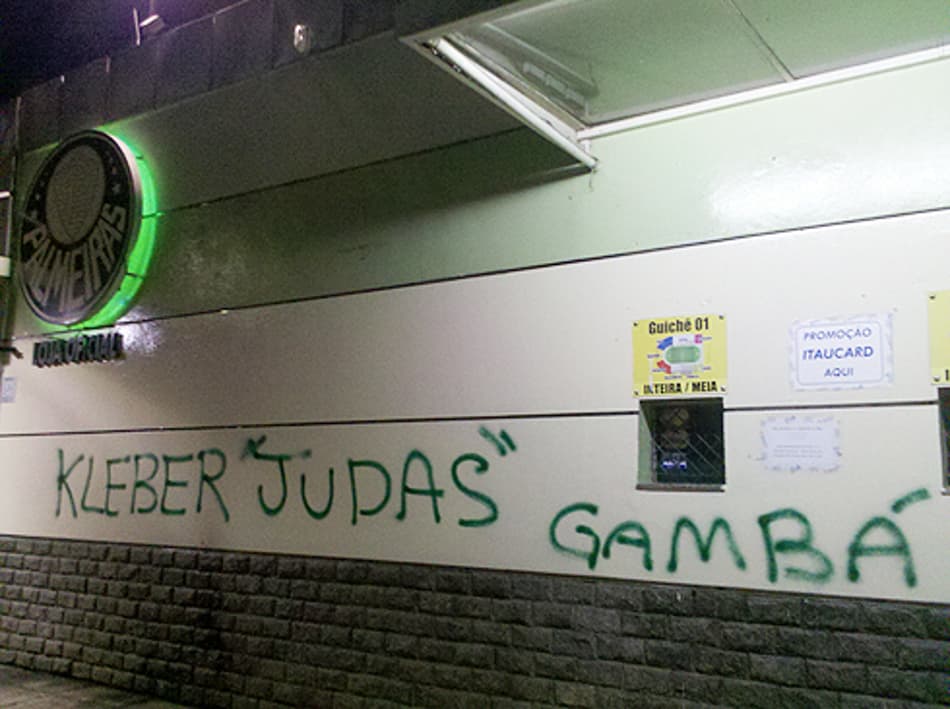 PALMEIRAS
LOJA OFICIAL
Guichê 01
INTEIRA / MEIA
PROMOÇÃO
ITAUCARD
AQUI
KLEBER "JUDAS"
GAMBÁ